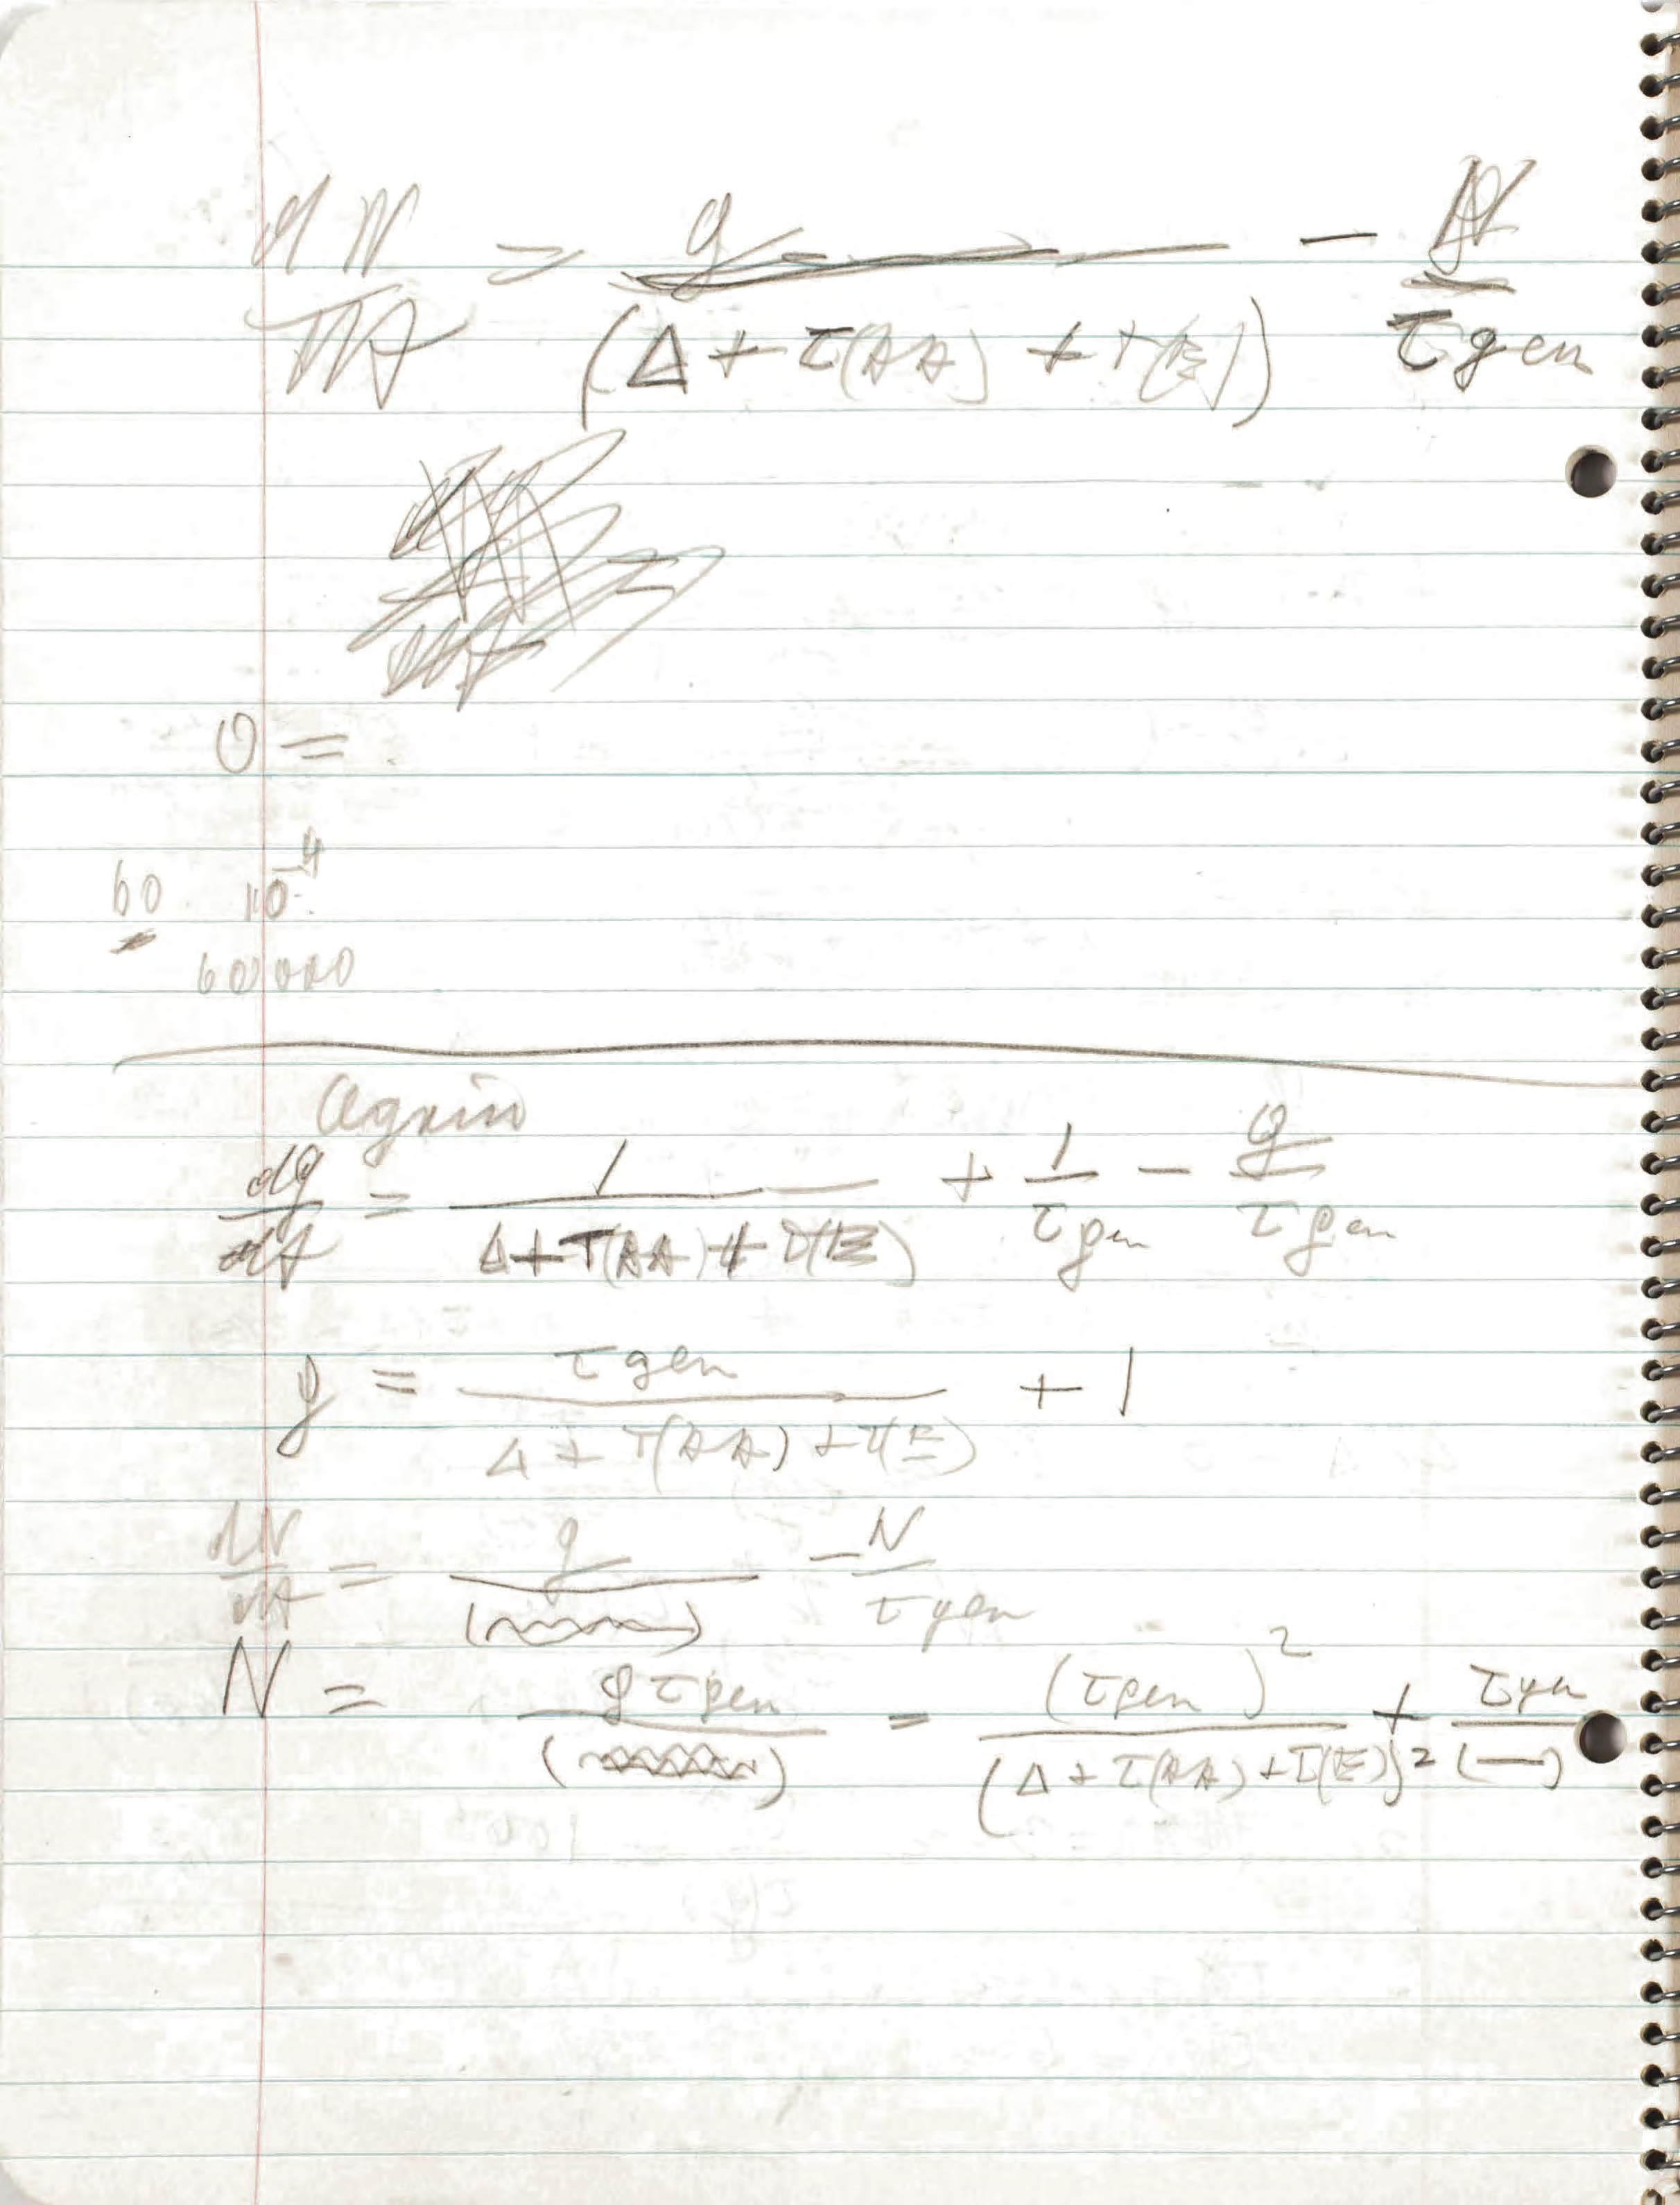 dN/dt = g/(Δ + τ(AA) + τ(E)) - N/τgen
0 =
60 10^-4
60000
Again
dg/dt = 1/(Δ + τ(AA) + τ(E)) + 1/τgen - g/τgen
g = τgen/(Δ + τ(AA) + τ(E)) + 1
dN/dt = g/( ) - N/τgen
N = gτgen/( ) = (τgen)^2/(Δ + τ(AA) + τ(E))^2 + τgen/(—)